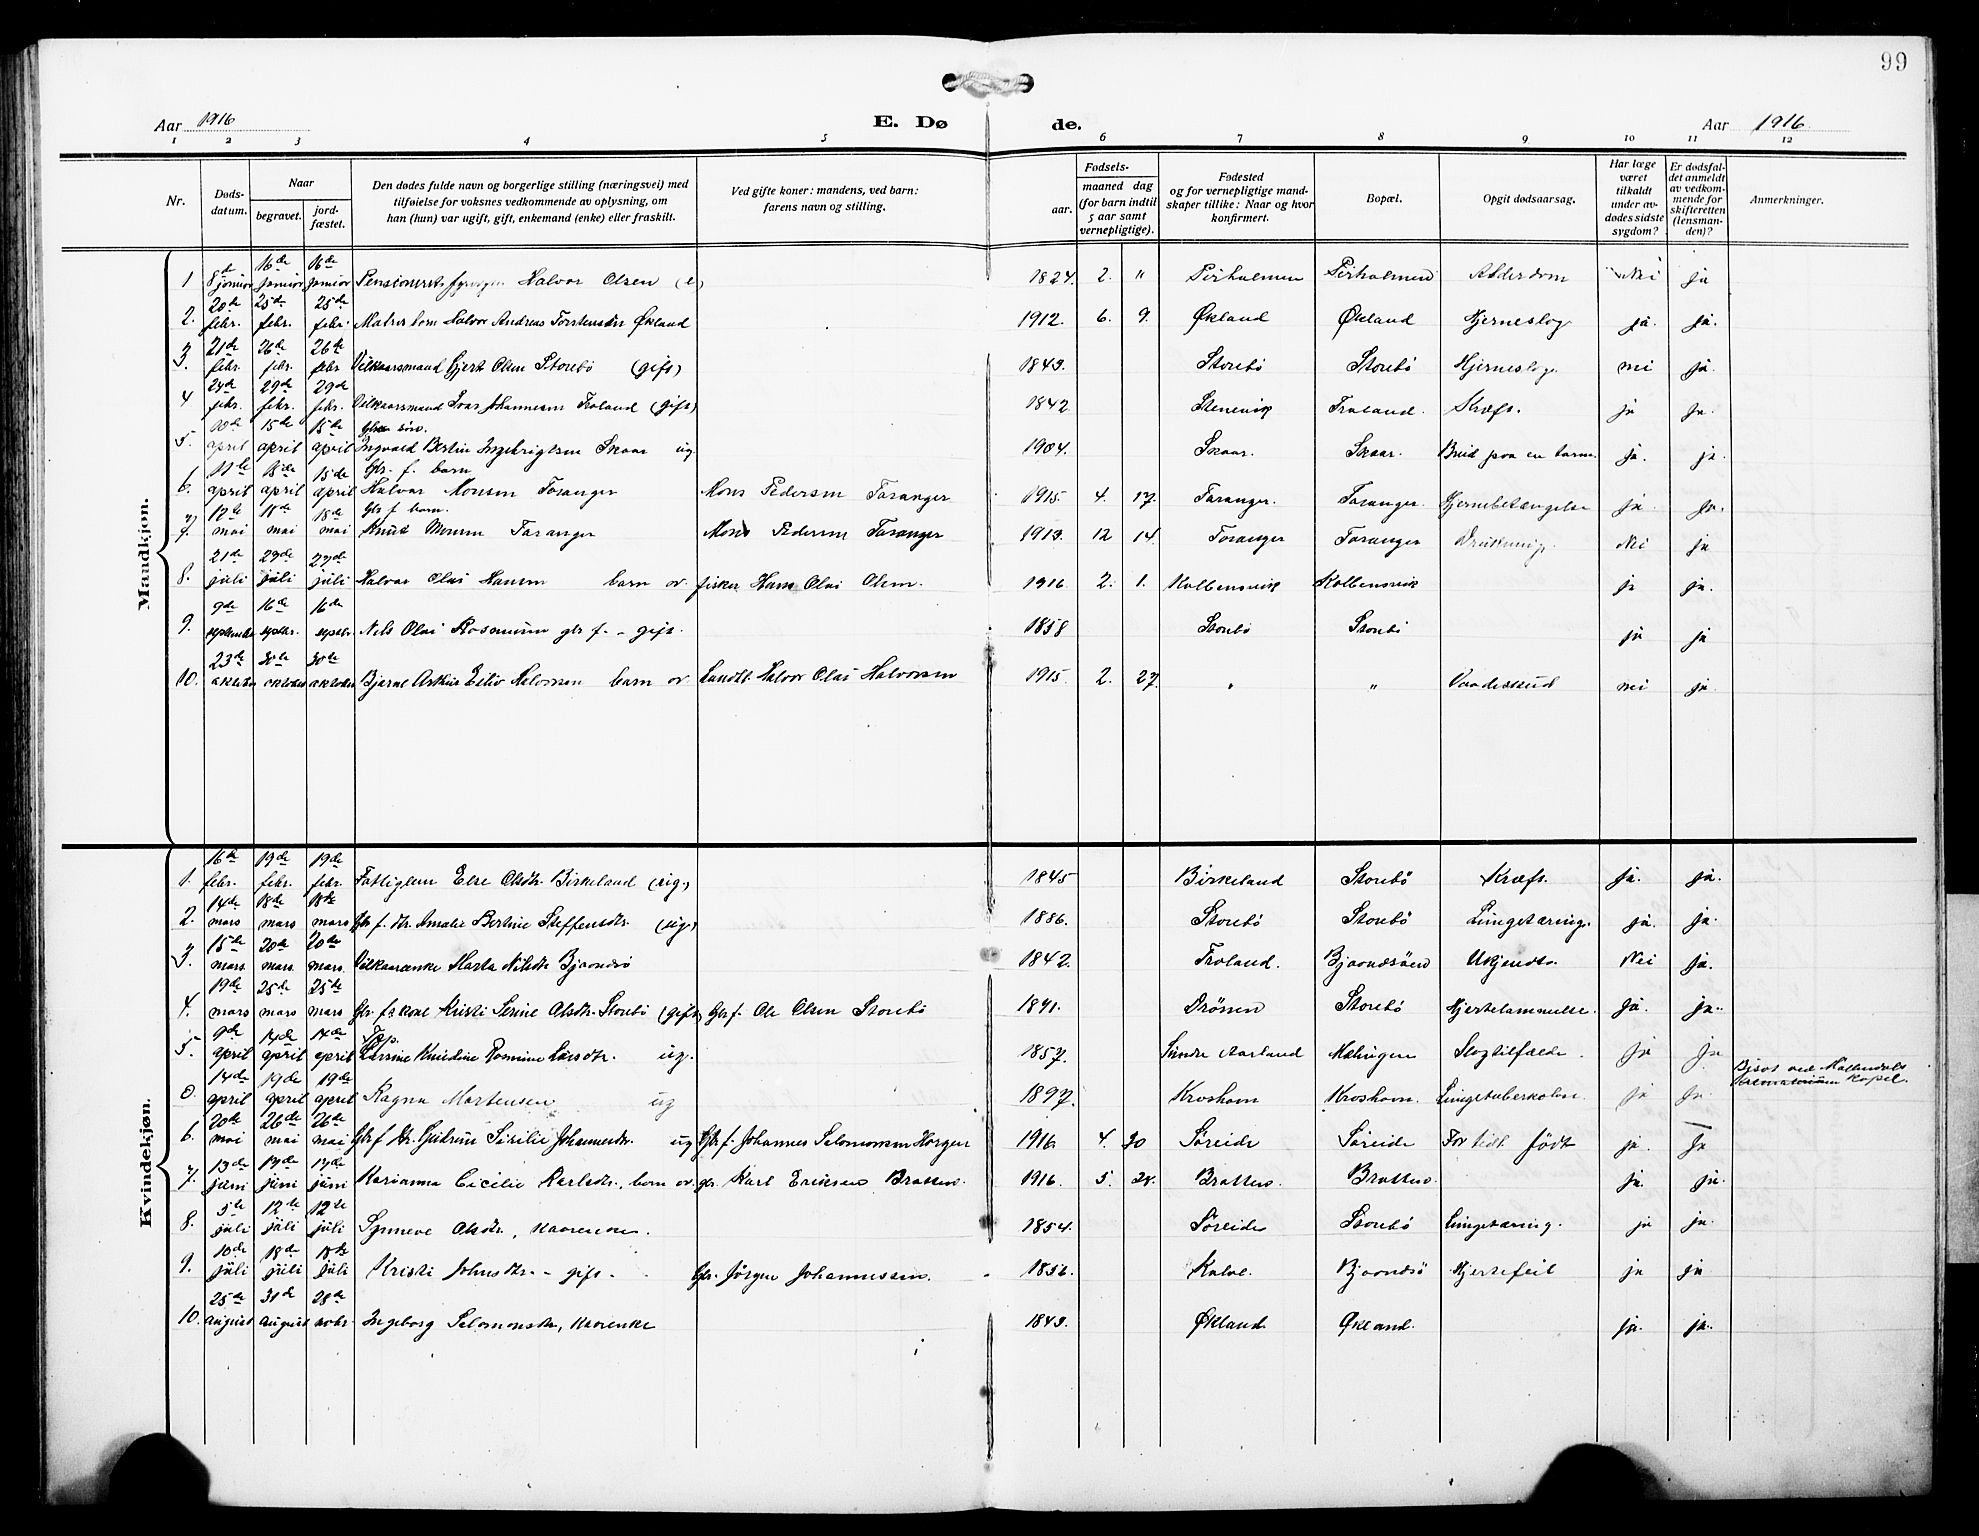 99
Aar 1916 E. Dø de. Aar 1916
1 2 3 4 5 6 7 8 9 10 11 12
Nr. Døds-datum. Naar begravet. jord-fæstet. Den dødes fulde navn og borgerlige stilling (næringsvei) med tilføielse for voksnes vedkommende av oplysning, om han (hun) var ugift, gift, enkemand (enke) eller fraskilt. Ved gifte koner: mandens, ved barn: farens navn og stilling. Fødsels- aar. maaned dag (for barn indtil 5 aar samt vernepligtige). Fødested og for vernepligtige mand-skaper tillike: Naar og hvor konfirmert. Bopæl. Opgit dødsaarsag. Har læge været tilkaldt under av-dødes sidste sygdom? Er dødsfal-det anmeldt av vedkom-mende for skifteretten (lensman-den)? Anmerkninger.
Mandkjøn.
1 8de januar 16de januar 16de januar Pensioneret Halvor Olsen (e) 1824. 2. " Alderdom Nei ja
2. 20de febr. 25de febr. 25de febr. Halvor Andreas Torstensen Økland 1912. 6. 9. Økland Økland Hjerneslag ja. ja.
3. 21de febr. 26de febr. 26de febr Vilkaarsmand Gjert Olsen Storebø (gift) 1843. Storebø Storebø Hjerneslag nei ja.
4 24de febr. 29de febr. 29de febr. Vilkaarsmand Ivar Johannesen Troland (gift) 1842 Stenevik Troland. Kræft. ja ja.
5. 10de april 15de april 15de april Ingvald Bertin Ingebrigtsen Skaar ug. 1904. Skaar. Skaar. ja. ja.
6. 11te april 15de april 15de april Gbr. f. barn Halvor Monsen Toranger Mons Pedersen Toranger 1915. 4. 17. Toranger. Toranger. Hjernebetændelse ja. ja.
7. 12te mai 18de mai 18de mai Gbr f barn. Knut Monsen Toranger Mons Pedersen Toranger 1913. 12 14. Toranger Toranger Drukning. Nei ja
8. 21de juli 29de juli juli Halvor Olai Hansen barn av fisker Hans Olai Olsen. 1916 2. 1. Kolbensvik Kolbensvik ja ja.
9. 9de september 16de septbr. 16de septbr. Nils Olai Rasmussen gbr f. - gift. 1858 Storebø Storebø ja ja
10. 23de oktober 30te oktober 30te oktober Bjarne Arthur Eiliv Halvorsen barn av Landh. Halvor Olai Halvorsen 1915. 2. 27. " " Vaadeskud nei ja.
Kvindekjøn.
1. 16de febr. 19de febr. 19de febr Fattiglem Else Olsdtr. Birkeland (ug.) 1845 Birkeland Storebø Kræft. ja. ja.
2. 14de mars 18de mars 18de mars Gbr f. dtr. Amalie Bertine Steffensdtr. (ug.) 1886. Storebø Storebø Lungetæring. ja. ja.
3. 15de mars. 20de mars. 20de mars. Vilkaarsenke Marta Nilsdtr Bjaandsø 1842. Troland. Bjaandsøen Ukjendt. Nei ja.
4. 19de mars 25de mars 25de mars Gbr f. kone Kristi Serine Olsdtr. Storebø (gift) Gbr f. Ole Olsen Storebø 1841. Drönen Storebø Hjertelammelse. ja. ja.
5. 9de april 14de april 14de april Larsine Knudine Romine Larsdtr. ug. 1857. Sundre Aarland Møkingen Slagtilfælde. ja ja
0. 14de april 19de april 19de april Ragna Mortensen ug 1897. Kroshavn Kroshavn. Lungetuberkulose. ja ja Bisat ved Møllendals krematorium kapel.
6. 20de mai 26de mai 26de mai Gbr f dtr. Gudrun Sirilie Johannesdtr. ug Gbr f. Johannes Salomonsen Horgen 1916. 4. 30 Søreide Søreide For tidl. født ja. ja
7. 13de juni juni juni Karianna Cicilie Karlsdtr., barn av gbr. Karl Eriksen 1916. 5. 28. ja. ja.
8. 5te juli 12te juli 12te juli Synneve Olsdtr., kaarenke. 1854. Søreide Storebø Lungetæring. ja ja.
9. 10de juli 18de juli 18de juli Kristi Johnsdtr. - gift. Gbr. Jørgen Johannessen. 1856. Kalve. Bjaandsø Hjertefeil ja ja
10. 25de august 31de august 28de Ingeborg Salomonsdtr., kaarenke 1843. Økland Økland. ja. ja.